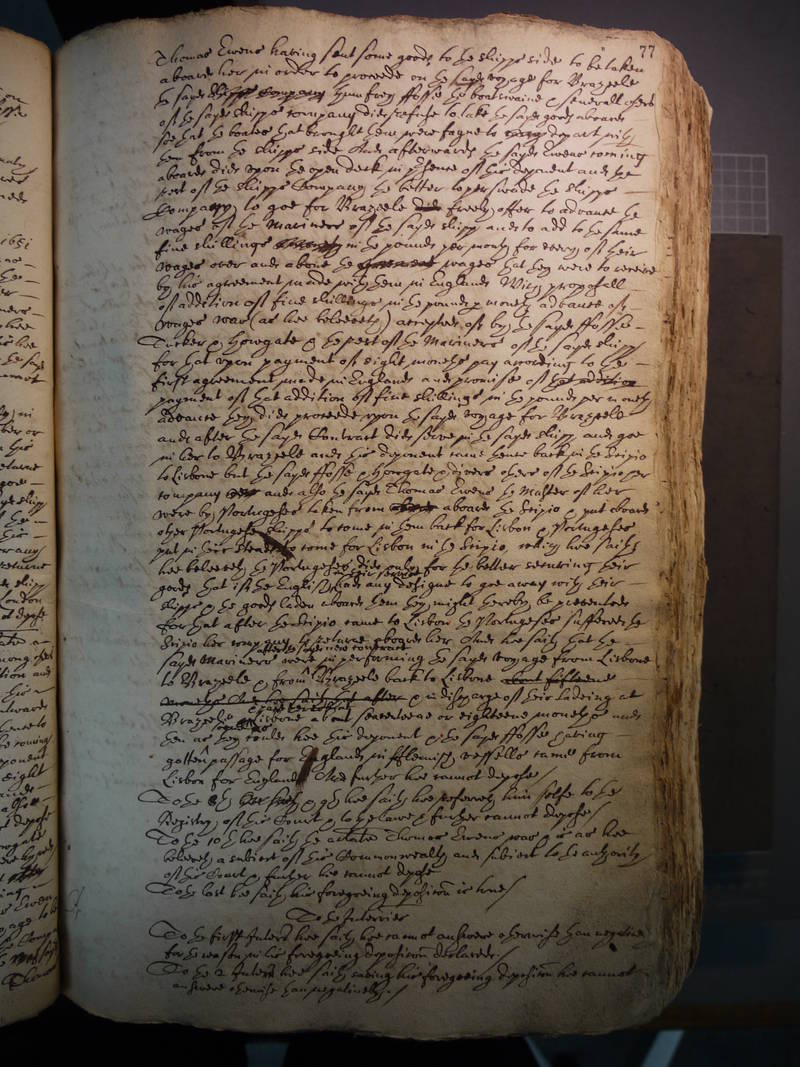 77
Thomas Ewens having sent some goods to the shipps side to be taken
aboard her in order to proceede on the sayd voyage for Brazeele
the sayd shipps company Humfrey ffosse the boatswaine & severall others
of the sayd shipps company did refuse to take the sayd goods aboard
soe that the boates that brought them were fayne to depart with
them from the shipps side And afterwards the sayd Ewens coming
aboard did upon the open deck in presence of this deponent and the
rest of the shipps Company the better to perswade the shipps
Company to goe for Brazeele did freely offer to advance the
wages of the Mariners of the sayd shipp and to add to the same
five shillings in the pounds per moneth for every of their
wages over and above the wages that they were to receive
by the agreement made with them in England Which proposall
of addition of five shillings in the pound p moneth advance of
wages was (as hee beleeveth) accepted of by the sayd ffosse
Tucker & Howgate & the rest of the Mariners of the sayd shipp
for that upon payment of eight moneths pay according to the
first agreement made in England and promise of the addition
payment of that addition of five shillings in the pounds per moneth
Advance they did proceede upon the sayd voyage for Brazeele
and after the sayd Contract did serve in the sayd shipp and goe
in her to Brazeele and this deponent came thence back in the Scipio
to Lisbone but the sayd ffosse & Howgate & divers others of the Scipio per
company and also the sayd Thomas Ewens the Master of her
were by Portugeses taken from aboard the Scipio & put aboard
other Portugese shipps to come in them back for Lisbon & Portugeses
put in their steads to come for Lisbon in the Scipio, which hee saith
hee beleeveth the Portugeses did only for the better securing their
goods that if the English had any designe to goe away with their
shipps & the goods laden aboard them they might thereby be prevented
for that after the Scipio came to Lisbon the Portugeses suffered the
Scipio her company to returne aboard her And hee saith that the
after the sayd new contract
sayd Mariners were in performing the sayd voyage from Lisbone
to Brazeele & from Brazeele back to Lisbone about fifteene
moneths And hee saith that after & in discharge of their ladeing at
Brazeele & Lisbone about seaventeene or eighteene moneths and
then as they could hee this deponent & the sayd ffosse having
gotten passage for England in fflemish vessells came from
Lisbon for England And further hee cannot depose
To the 8th & 9th hee saith hee referreth him selfe to the
Registry of this Court & to the lawe & further cannot depose
To the 10th hee saith the arlate Thomas Ewens was & is as hee
beleeveth a subiect of this Commonwealth and subiect to the authority
of this Court & further hee cannot depose
To the last hee saith his foregoeing deposition is true
To the Interries
To the first Interr hee saith hee cannot answere otherwise than negatively
for the reason in his foregoeing deposition declared.
To the 2 Interr hee saith saving his foregoeing deposition hee cannot
answere otherwise than negatively.